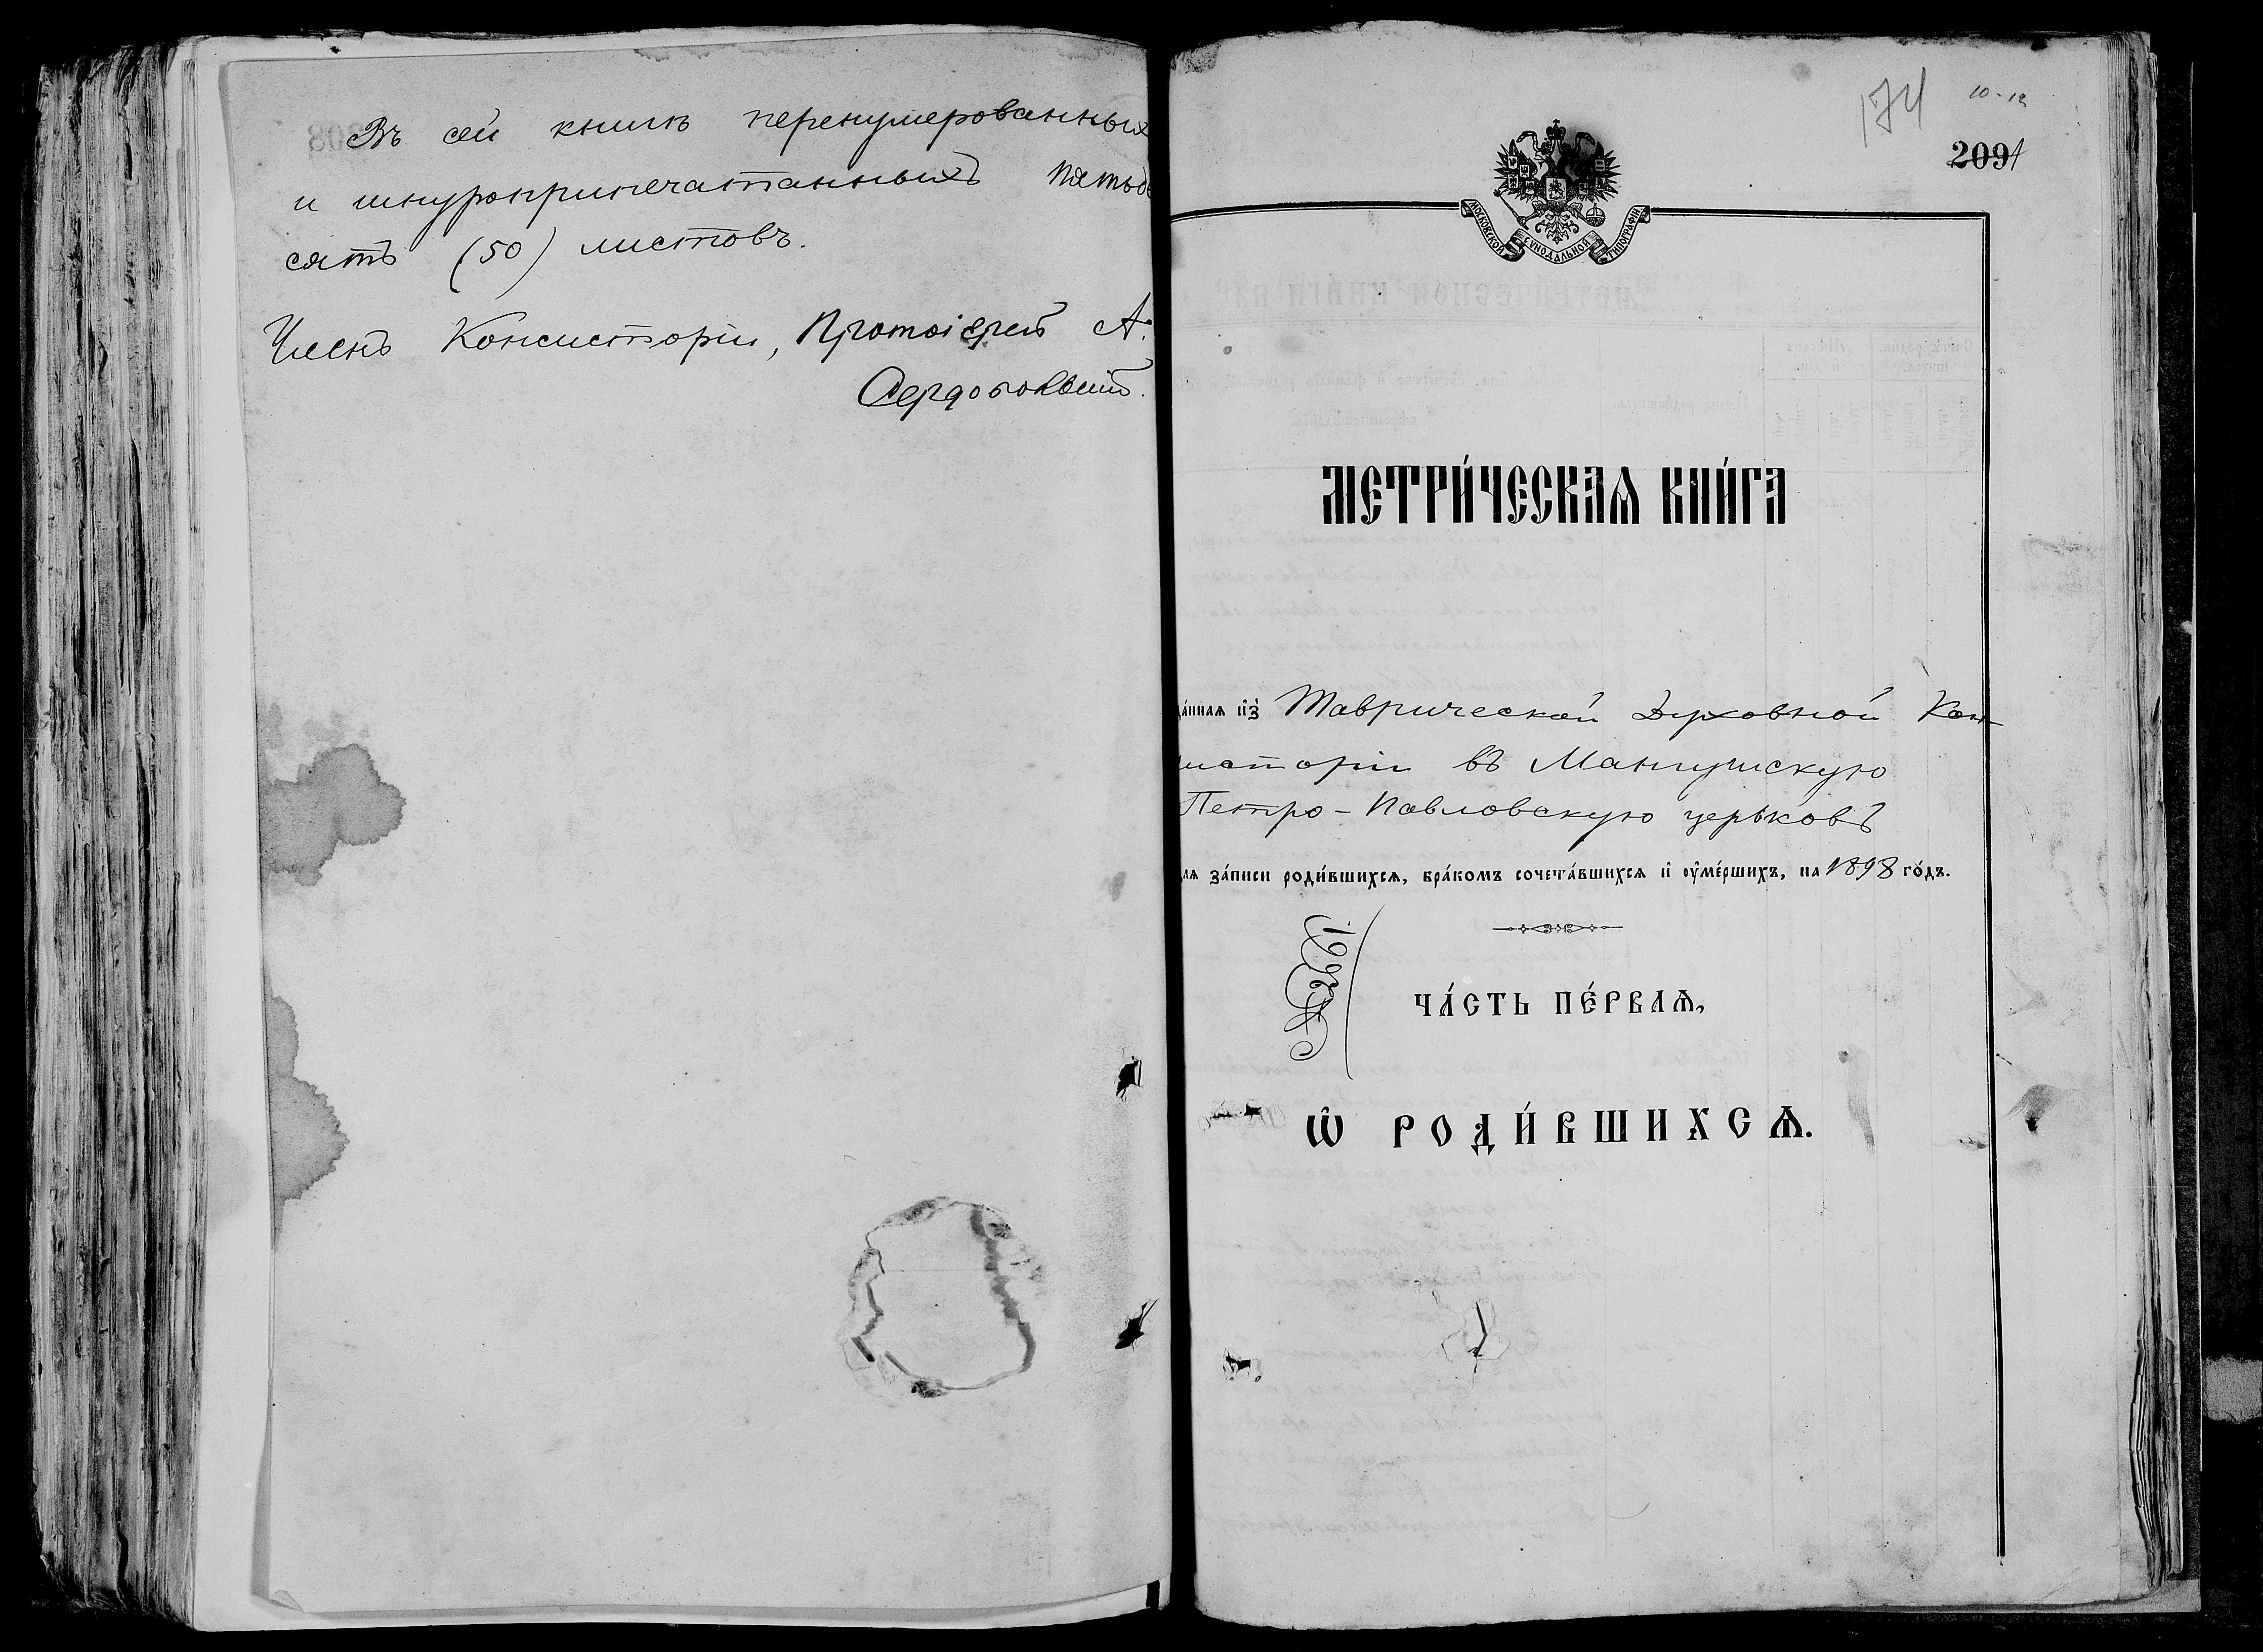 Въ сей книгѣ перенумерованных
и шнуроприпечатанныхъ пятьде
сятъ (50) листовъ.
Членъ Консисторіи, Протоіерей А.
Сердобольскій.
174
10-12
2091
МОСКОВСКОЙ СѴНОДАЛЬНОЙ ТИПОГРАФІИ
МЕТРИ́ЧЕСКАѦ КНИ́ГА
да́ннаѧ и҆з̾ Таврической Духовной Кон-
систоріи въ Мангушскую
Петро-Павловскую церьковъ
для за́писи роди́вшихсѧ, бра́комъ сочета́вшихсѧ и҆ оу҆ме́ршихъ, на 1898 го́дъ.
ЧА́СТЬ ПЕ́РВАѦ,
Ѡ҆ РОДИ́ВШИХСѦ.